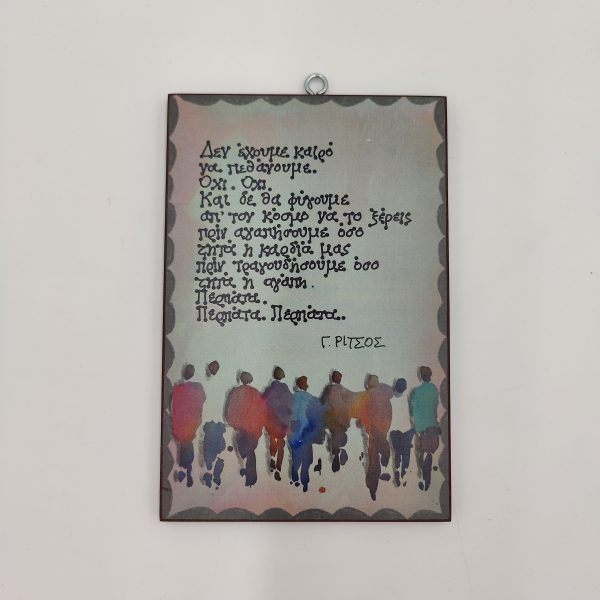 Δεν έχουμε καιρό
να πεθάνουμε.
Όχι. Όχι.
Και δε θα φύγουμε
απ' τον κόσμο να το ξέρεις
πριν αγαπήσουμε όσο
ζητά η καρδιά μας
πριν τραγουδήσουμε όσο
ζητά η αγάπη.
Περπάτα.
Περπάτα. Περπάτα..
Γ. ΡΙΤΣΟΣ